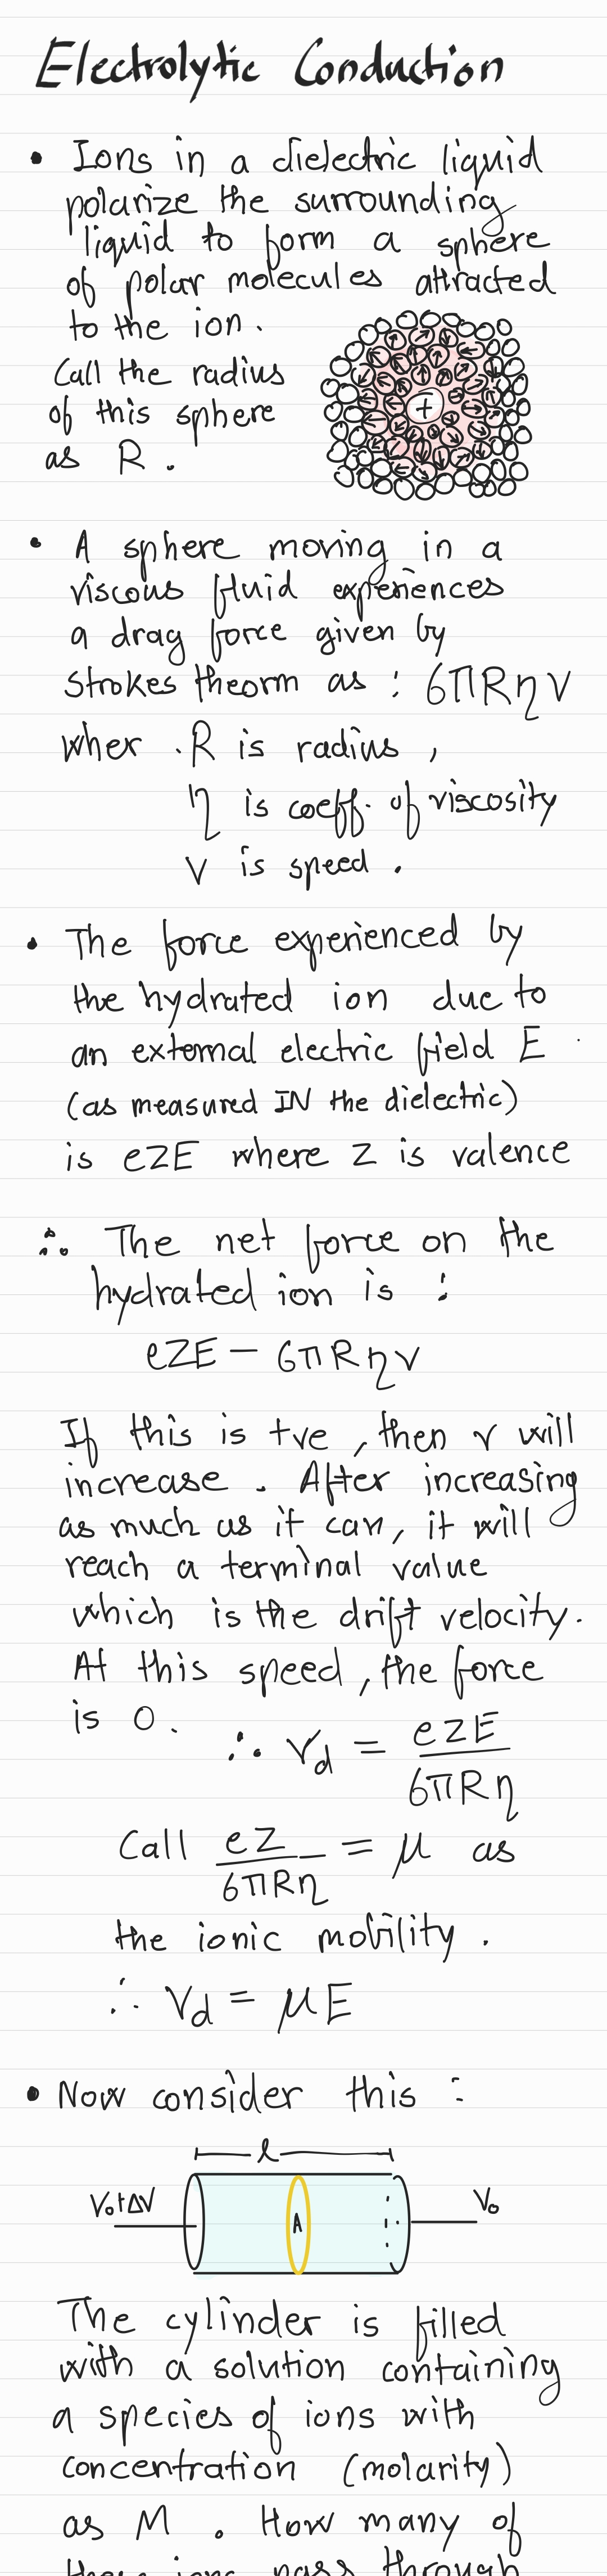 Electrolytic Conduction
• Ions in a dielectric liquid
polarize the surrounding
liquid to form a sphere
of polar molecules attracted
to the ion.
Call the radius
of this sphere
as R.
+
• A sphere moving in a
viscous fluid experiences
a drag force given by
Strokes theorm as : 6πRηv
wher . R is radius,
η is coeff. of viscosity
v is speed.
• The force experienced by
the hydrated ion due to
an external electric field E
(as measured IN the dielectric)
is eZE where Z is valence
∴ The net force on the
hydrated ion is :
eZE - 6πRηv
If this is +ve, then v will
increase. After increasing
as much as it can, it will
reach a terminal value
which is the drift velocity.
At this speed, the force
is 0. ∴ v_d = eZE / 6πRη
Call eZ / 6πRη = μ as
the ionic mobility.
∴ v_d = μE
• Now consider this :
l
V₀+ΔV A V₀
The cylinder is filled
with a solution containing
a species of ions with
concentration (molarity)
as M. How many of
these ions pass through